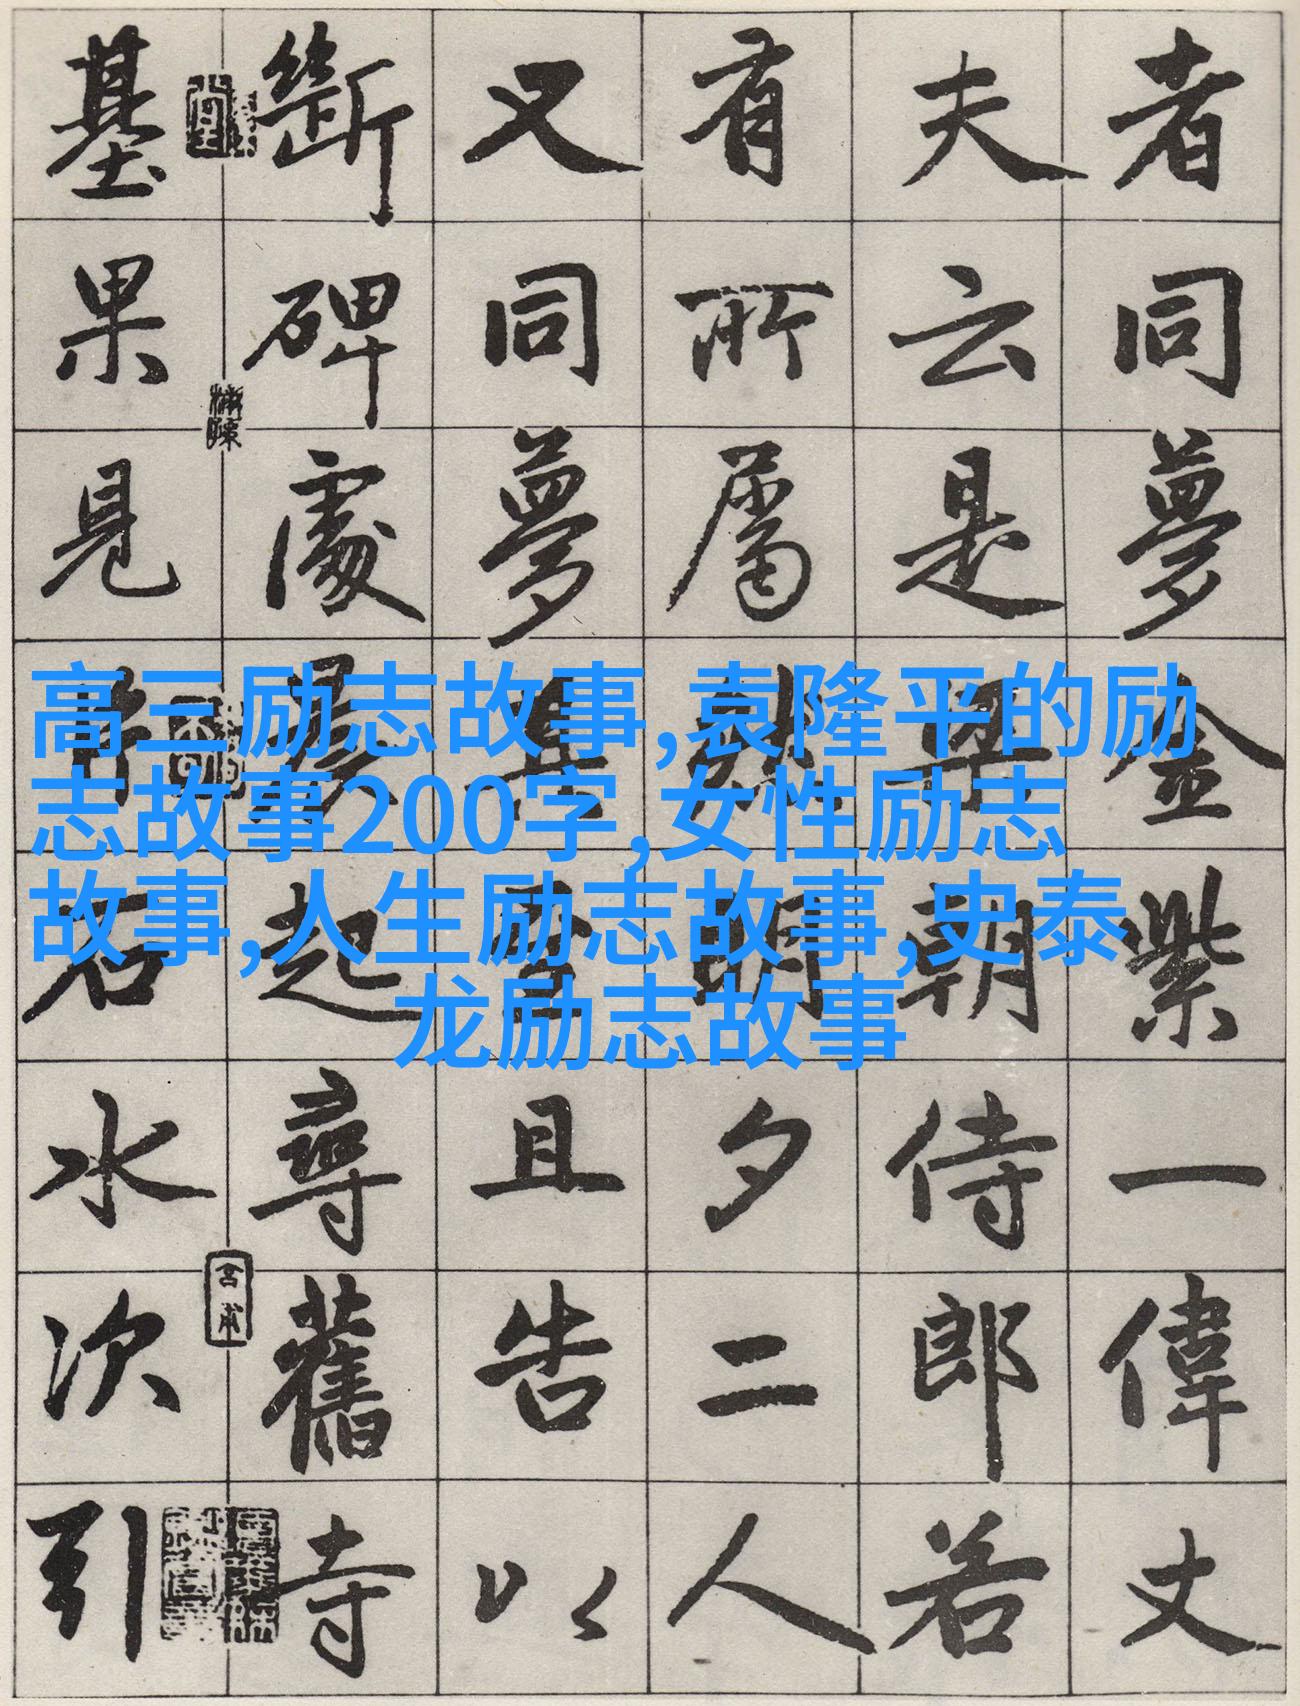 者同夢金紫一偉丈
夫云是平朝侍郎若
有所屬然明夕二人
又同夢其言且告以
斷碑處晨起尋舊寺
基果見石水次引
高三励志故事,袁隆平的励
志故事200字,女性励志
故事,人生励志故事,史泰
龙励志故事